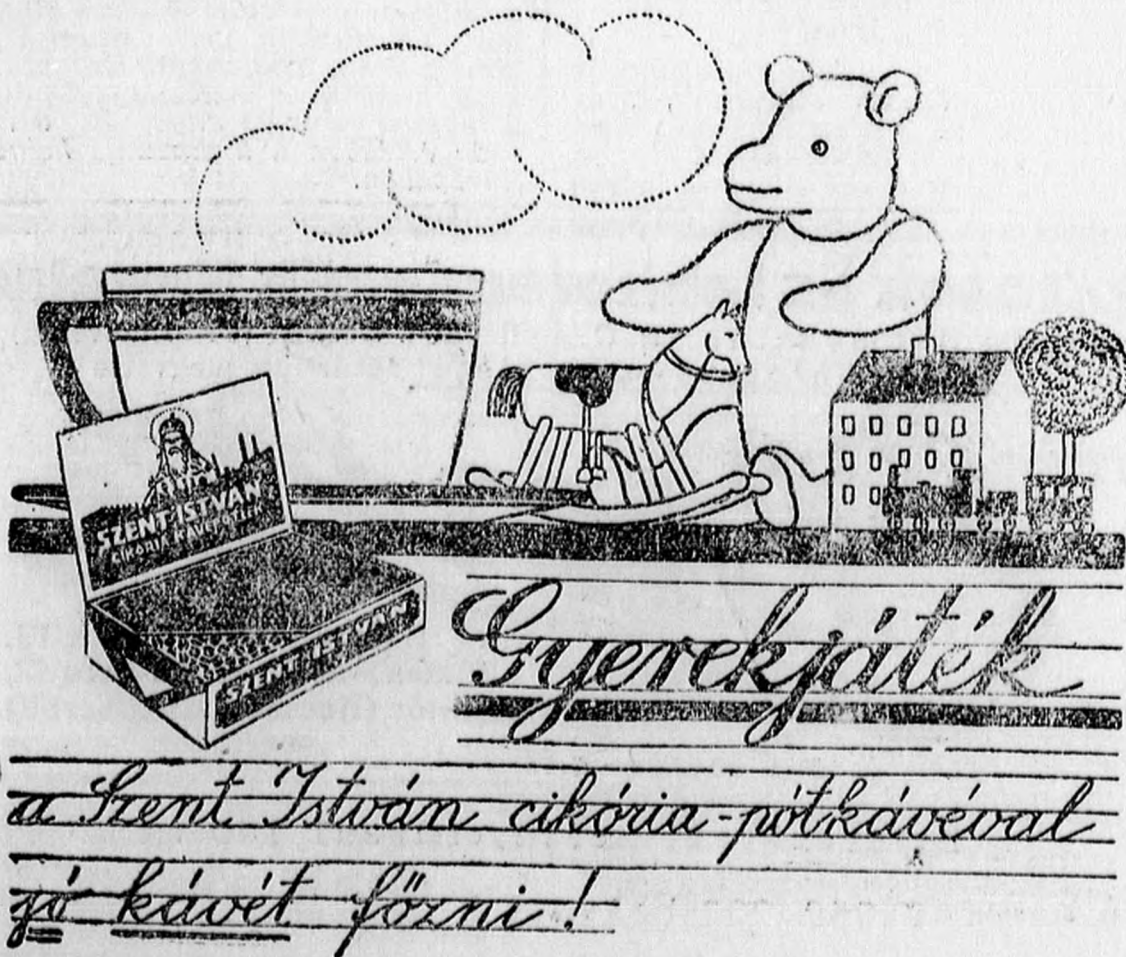 SZENT ISTVÁN
CIKÓRIA PÓTKÁVÉ
SZENT ISTVÁN
Gyerekjáték
a Szent István cikória-pótkávéval
jó kávét főzni!